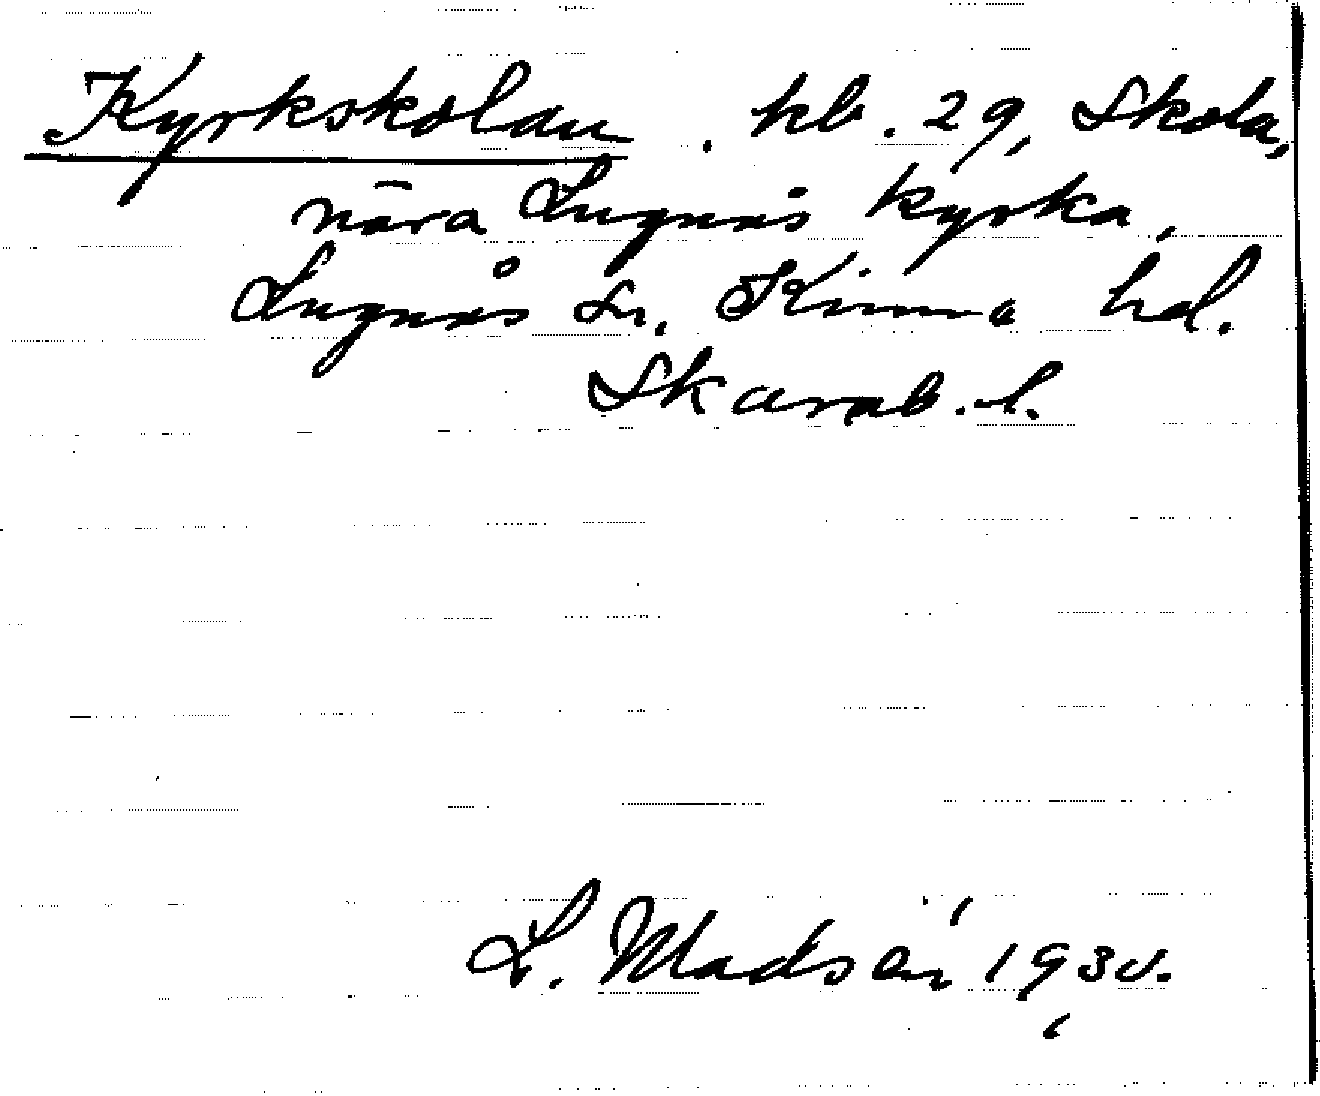 Kyrkskolan. kb. 29, Skola,
nära Lugnås kyrka,
Lugnås sn, Kinne hd.
Skarab. l.
L. Madsén 1930.